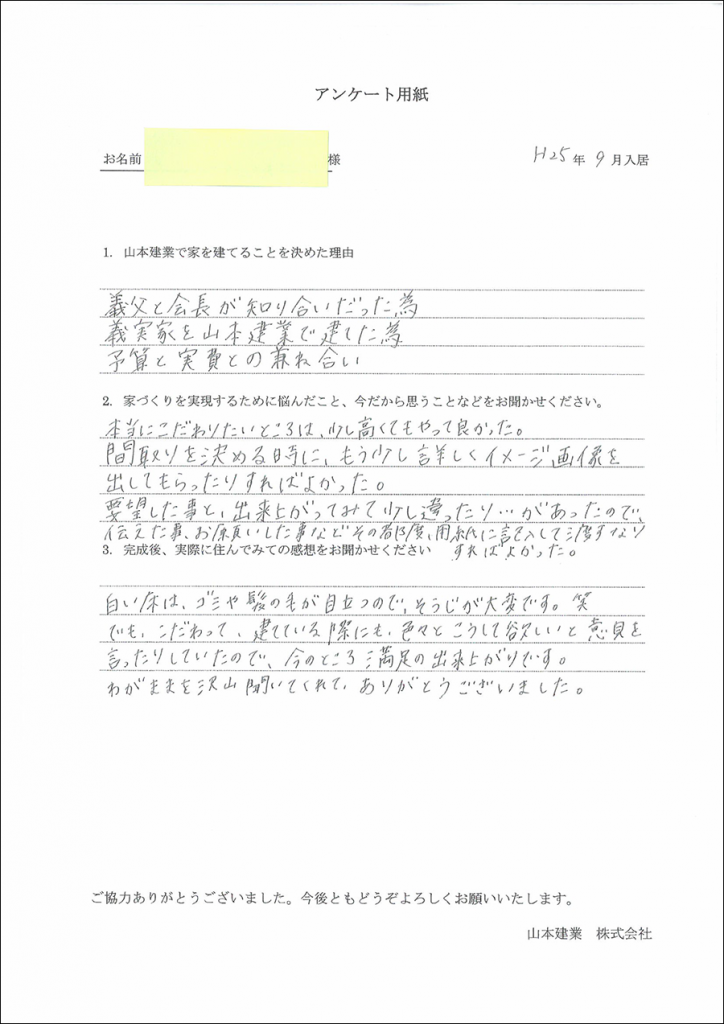 アンケート用紙
お名前 様
H25年 9月入居
1. 山本建業で家を建てることを決めた理由
義父と会長が知り合いだった為
義実家を山本建業で建てた為
予算と実費との兼ね合い
2. 家づくりを実現するために悩んだこと、今だから思うことなどをお聞かせください。
本当にこだわりたいところは、少し高くてもやって良かった。
間取りを決める時に、もう少し詳しくイメージ画像を
出してもらったりすればよかった。
要望した事と、出来上がってみて少し違ったり…があったので、
伝えた事、お願いした事などその都度、用紙に記入して渡すなり
すればよかった。
3. 完成後、実際に住んでみての感想をお聞かせください
白い床は、ゴミや髪の毛が目立つので、そうじが大変です。笑
でも、こだわって、建てている際にも、色々とこうして欲しいと意見を
言ったりしていたので、今のところ満足の出来上がりです。
わがままを沢山聞いてくれて、ありがとうございました。
ご協力ありがとうございました。今後ともどうぞよろしくお願いいたします。
山本建業 株式会社